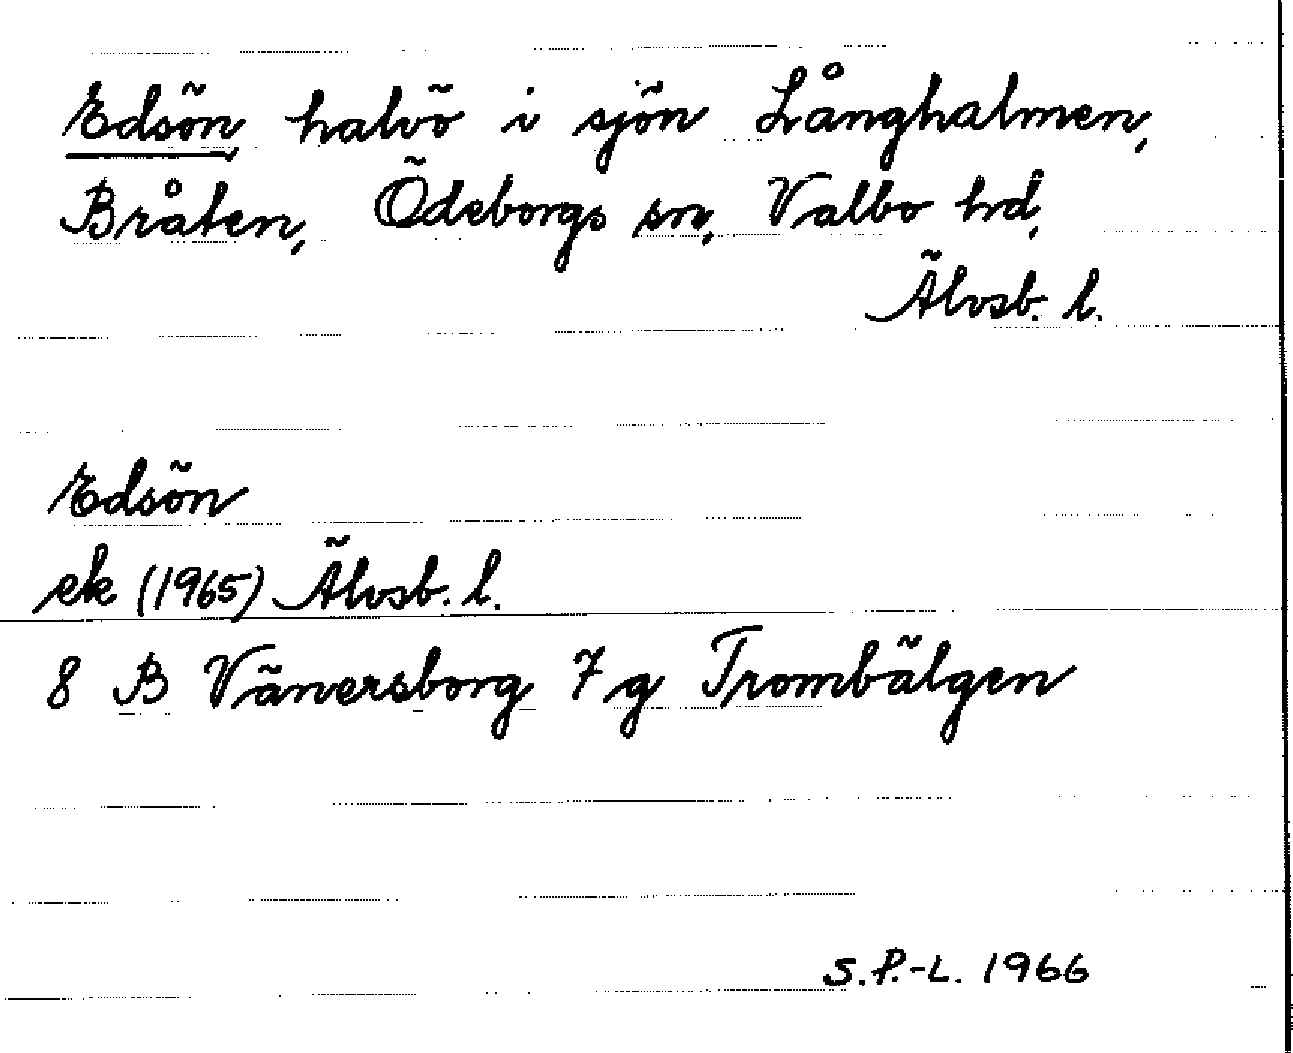 Edsön, halvö i sjön Långhalmen,
Bråten, Ödeborgs sn, Valbo hd,
Älvsb. l.
Edsön
ek (1965) Älvsb. l.
8 B Vänersborg 7 g Trombälgen
S.P.-L. 1966